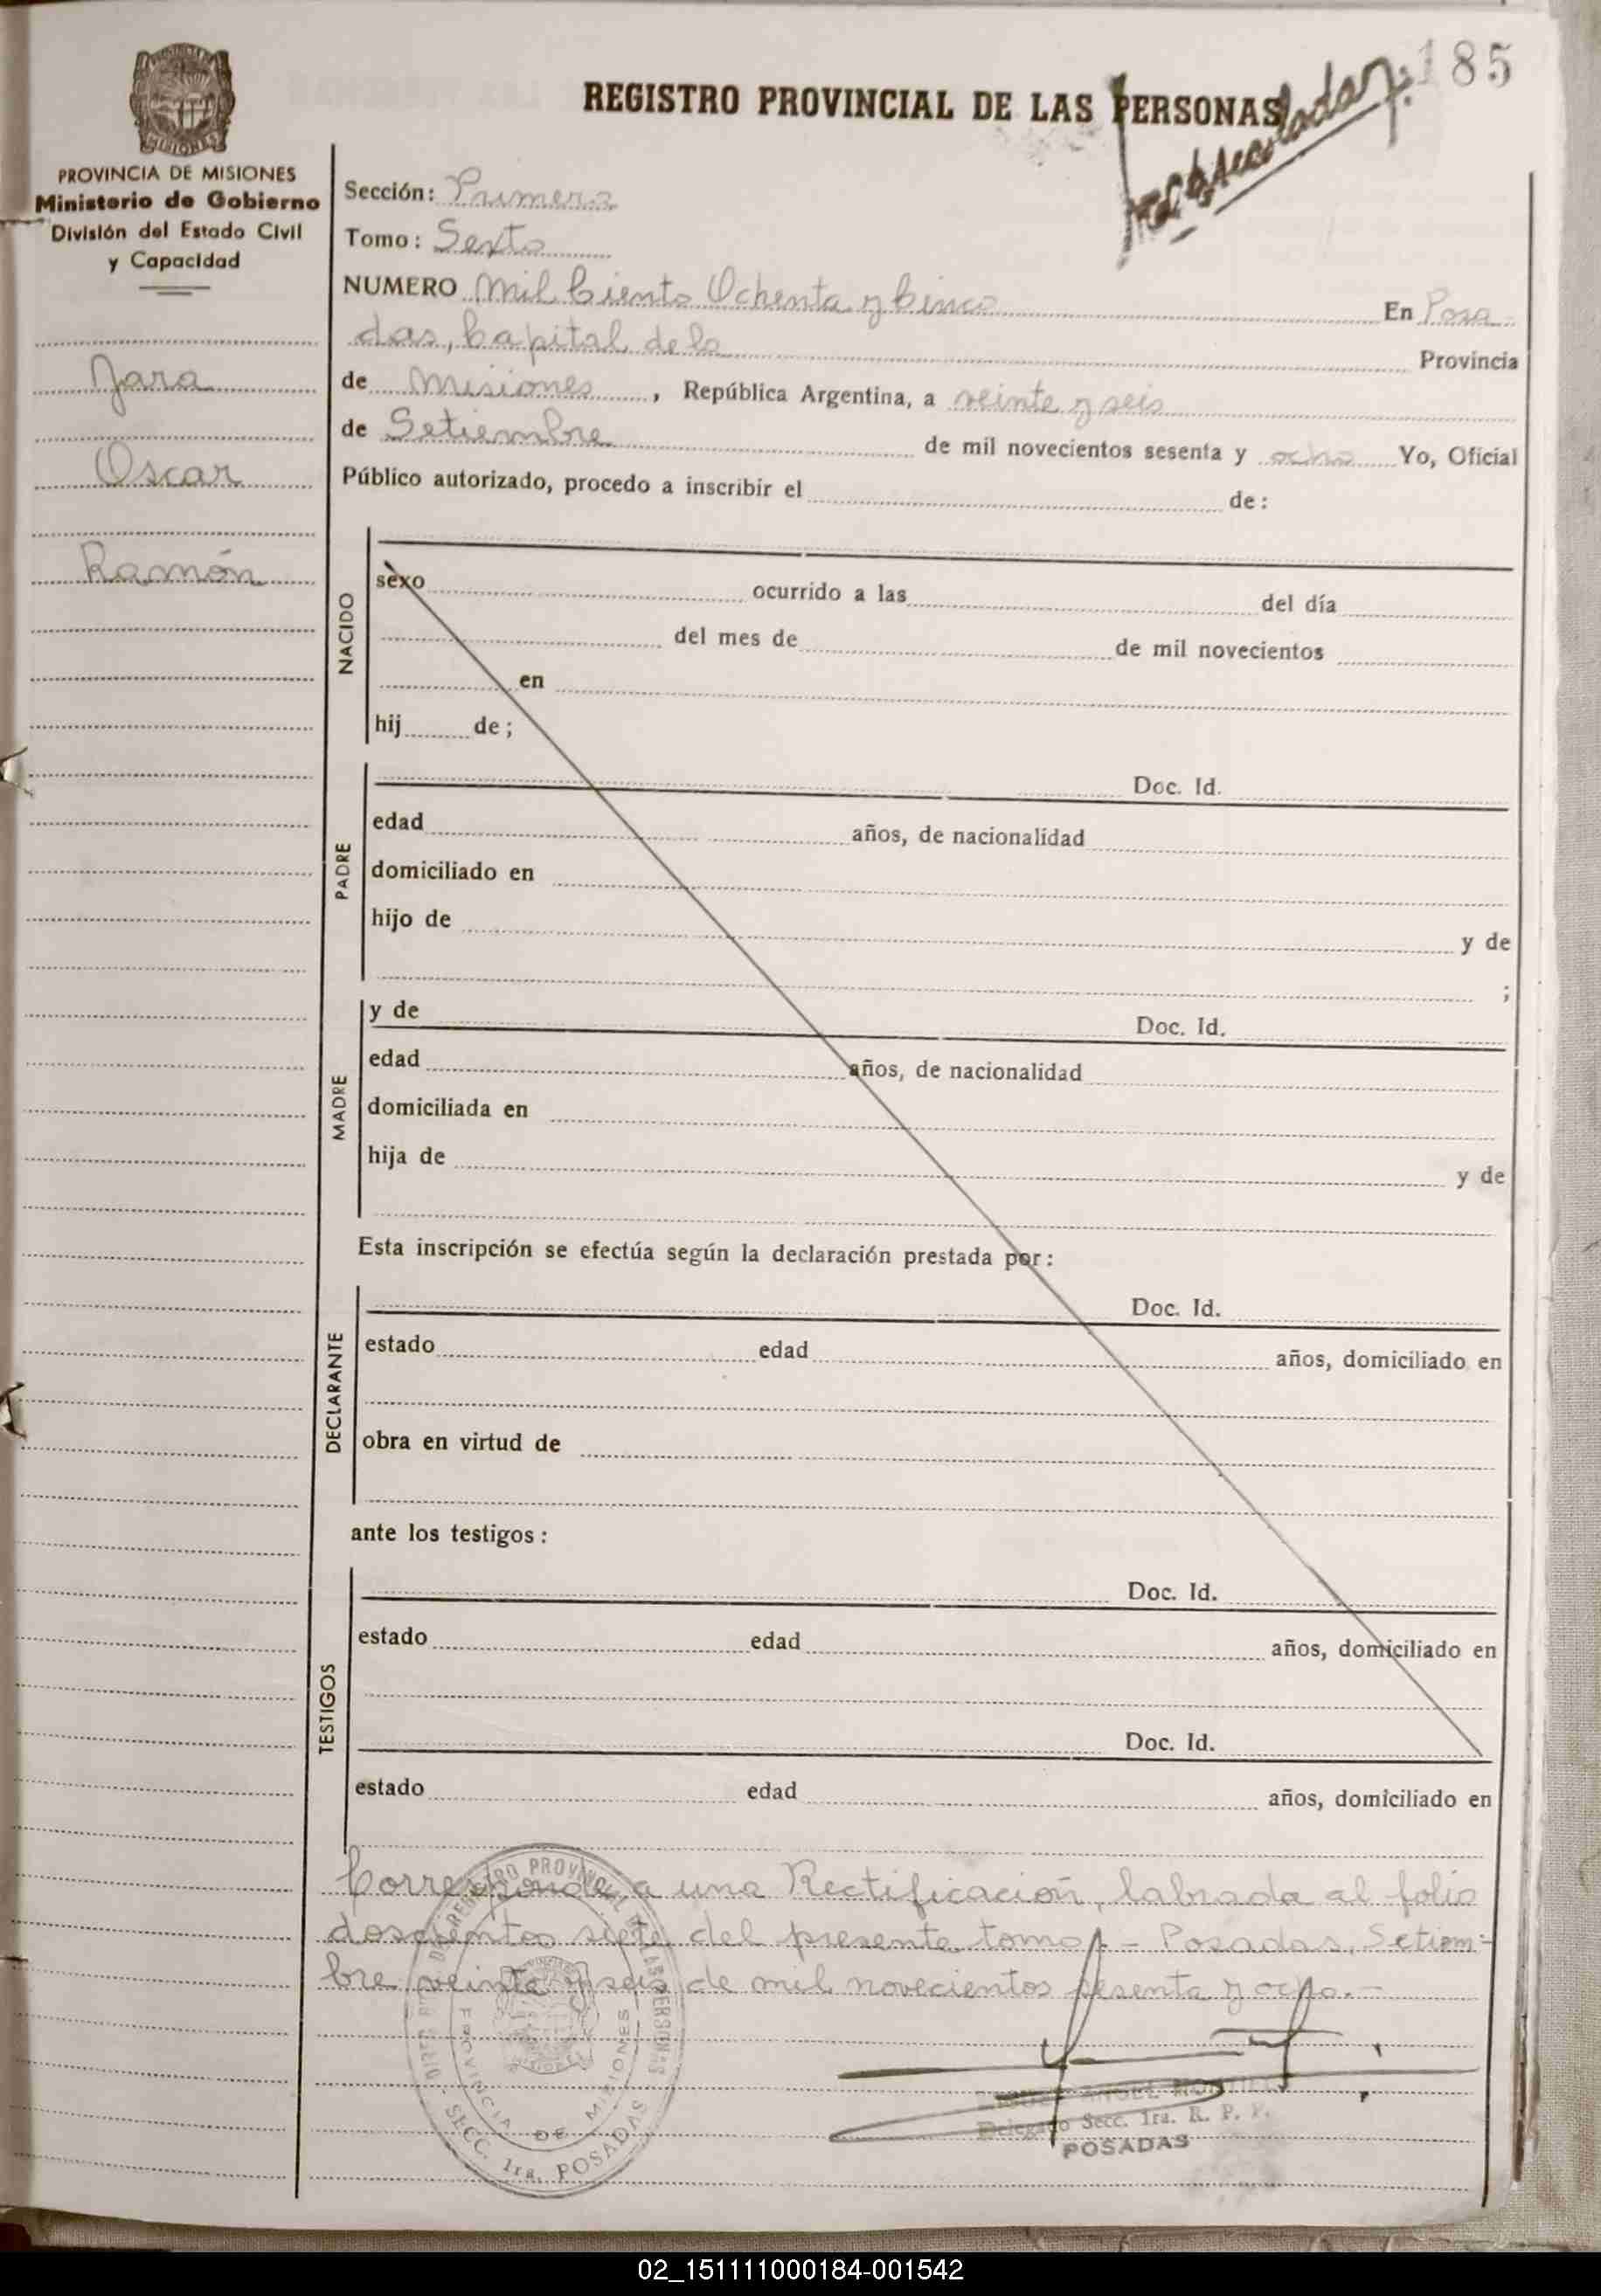 185
REGISTRO PROVINCIAL DE LAS PERSONAS
PROVINCIA DE MISIONES
Ministerio de Gobierno
División del Estado Civil
y Capacidad
Jara
Oscar
Ramón
Sección: Primera
Tomo: Sexto
NUMERO Mil Ciento Ochenta y Cinco En Posa-
das, Capital de la Provincia
de Misiones, República Argentina, a veinte y seis
de Setiembre de mil novecientos sesenta y ocho Yo, Oficial
Público autorizado, procedo a inscribir el de:
NACIDO
sexo ocurrido a las del día
del mes de de mil novecientos
en
hij de;
PADRE
Doc. Id.
edad años, de nacionalidad
domiciliado en
hijo de y de
;
MADRE
y de Doc. Id.
edad años, de nacionalidad
domiciliada en
hija de y de
Esta inscripción se efectúa según la declaración prestada por:
DECLARANTE
Doc. Id.
estado edad años, domiciliado en
obra en virtud de
ante los testigos:
TESTIGOS
Doc. Id.
estado edad años, domiciliado en
Doc. Id.
estado edad años, domiciliado en
Corresponde a una Rectificación, labrada al folio
doscientos siete del presente tomo.- Posadas, Setiem-
bre veinte y seis de mil novecientos sesenta y ocho.-
PROVINCIA DE MISIONES
SECC. 1ra. POSADAS
ANGEL
Delegado Secc. 1ra. R. P. P.
POSADAS
02_151111000184-001542